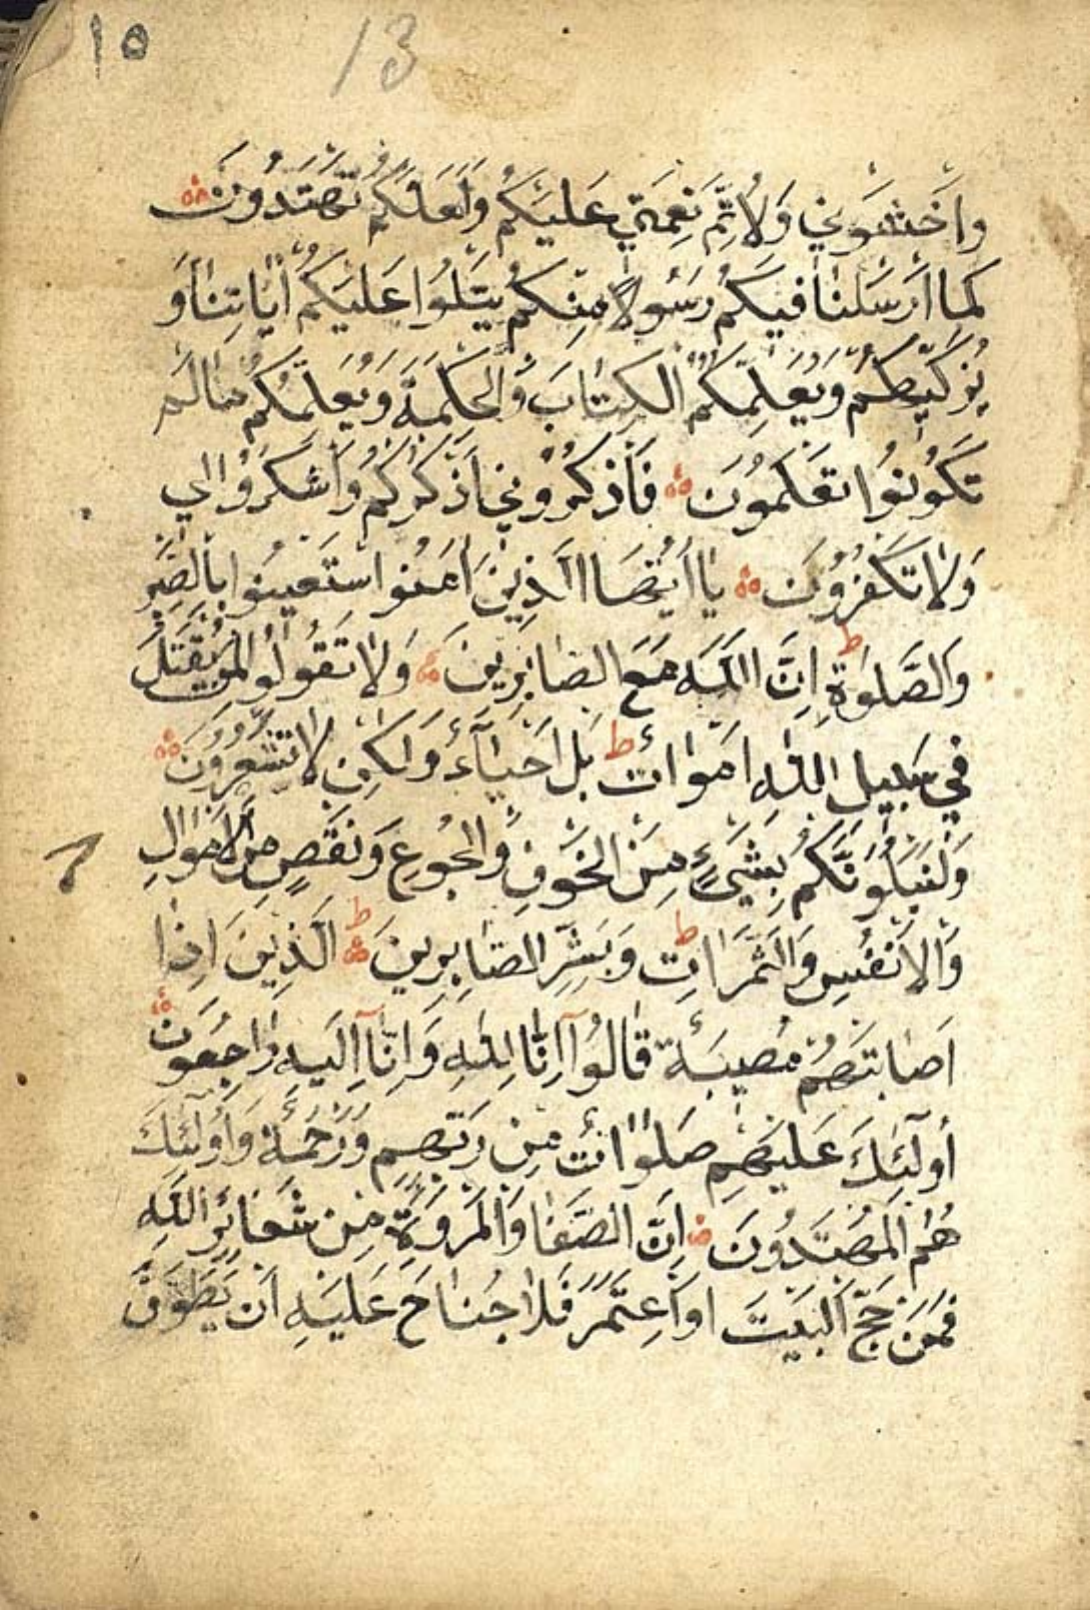 ١٥
13
وَاخْشَوْنِي وَلِأُتِمَّ نِعْمَتِي عَلَيْكُمْ وَلَعَلَّكُمْ تَهْتَدُونَ
كَمَا اَرْسَلْنَا فِيكُمْ رَسُولًا مِنْكُمْ يَتْلُوا عَلَيْكُمْ اٰيَاتِنَا وَ
يُزَكِّيكُمْ وَيُعَلِّمُكُمُ الْكِتَابَ وَالْحِكْمَةَ وَيُعَلِّمُكُمْ مَا لَمْ
تَكُونُوا تَعْلَمُونَ فَاذْكُرُونِي اَذْكُرْكُمْ وَاشْكُرُوا لِي
وَلَا تَكْفُرُونَ يَا اَيُّهَا الَّذِينَ اٰمَنُوا اسْتَعِينُوا بِالصَّبْرِ
وَالصَّلٰوةِ ط اِنَّ اللّٰهَ مَعَ الصَّابِرِينَ وَلَا تَقُولُوا لِمَنْ يُقْتَلُ
فِي سَبِيلِ اللّٰهِ اَمْوَاتٌ ط بَلْ اَحْيَآءٌ وَلٰكِنْ لَا تَشْعُرُونَ
وَلَنَبْلُوَنَّكُمْ بِشَيْءٍ مِنَ الْخَوْفِ وَالْجُوعِ وَنَقْصٍ مِنَ الْاَمْوَالِ
وَالْاَنْفُسِ وَالثَّمَرَاتِ ط وَبَشِّرِ الصَّابِرِينَ ط الَّذِينَ اِذَا
اَصَابَتْهُمْ مُصِيبَةٌ قَالُوا اِنَّا لِلّٰهِ وَاِنَّا اِلَيْهِ رَاجِعُونَ
اُولٰٓئِكَ عَلَيْهِمْ صَلَوَاتٌ مِنْ رَبِّهِمْ وَرَحْمَةٌ وَاُولٰٓئِكَ
هُمُ الْمُهْتَدُونَ اِنَّ الصَّفَا وَالْمَرْوَةَ مِنْ شَعَائِرِ اللّٰهِ
فَمَنْ حَجَّ الْبَيْتَ اَوِ اعْتَمَرَ فَلَا جُنَاحَ عَلَيْهِ اَنْ يَطَّوَّفَ